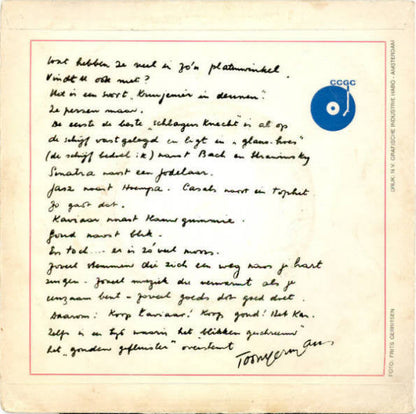 Wat hebben ze veel in zo'n platenwinkel.
Vindt U ook niet?
Het is een soort "Kruyenier in deunen".
Ze persen maar.
De eerste de beste "schlager knecht" is al op
de schijf vastgelegd en ligt in "glans-hoes"
(de schijf bedoel ik) naast Bach en Strawinsky
Sinatra naast een jodelaar.
Jazz naast Hoempa. Casals naast een Tophit
Zo gaat dat.
Kaviaar naast Kauwgummie.
Goud naast blik.
En toch.... er is zóveel moois.
Zoveel stemmen die zich een weg naar je hart
zingen. Zoveel muziek die verwarmt als je
eenzaam bent - zoveel goeds dat goed doet.
Daarom: Koop Kaviaar! Koop goud! Het kan.
Zelfs in een tijd waarin het "blikken geschreeuw"
het "gouden gefluister" overstemt
Toon Hermans
CCGC
DRUK: N.V. GRAFISCHE INDUSTRIE HABO - AMSTERDAM
FOTO: FRITS GERRITSEN